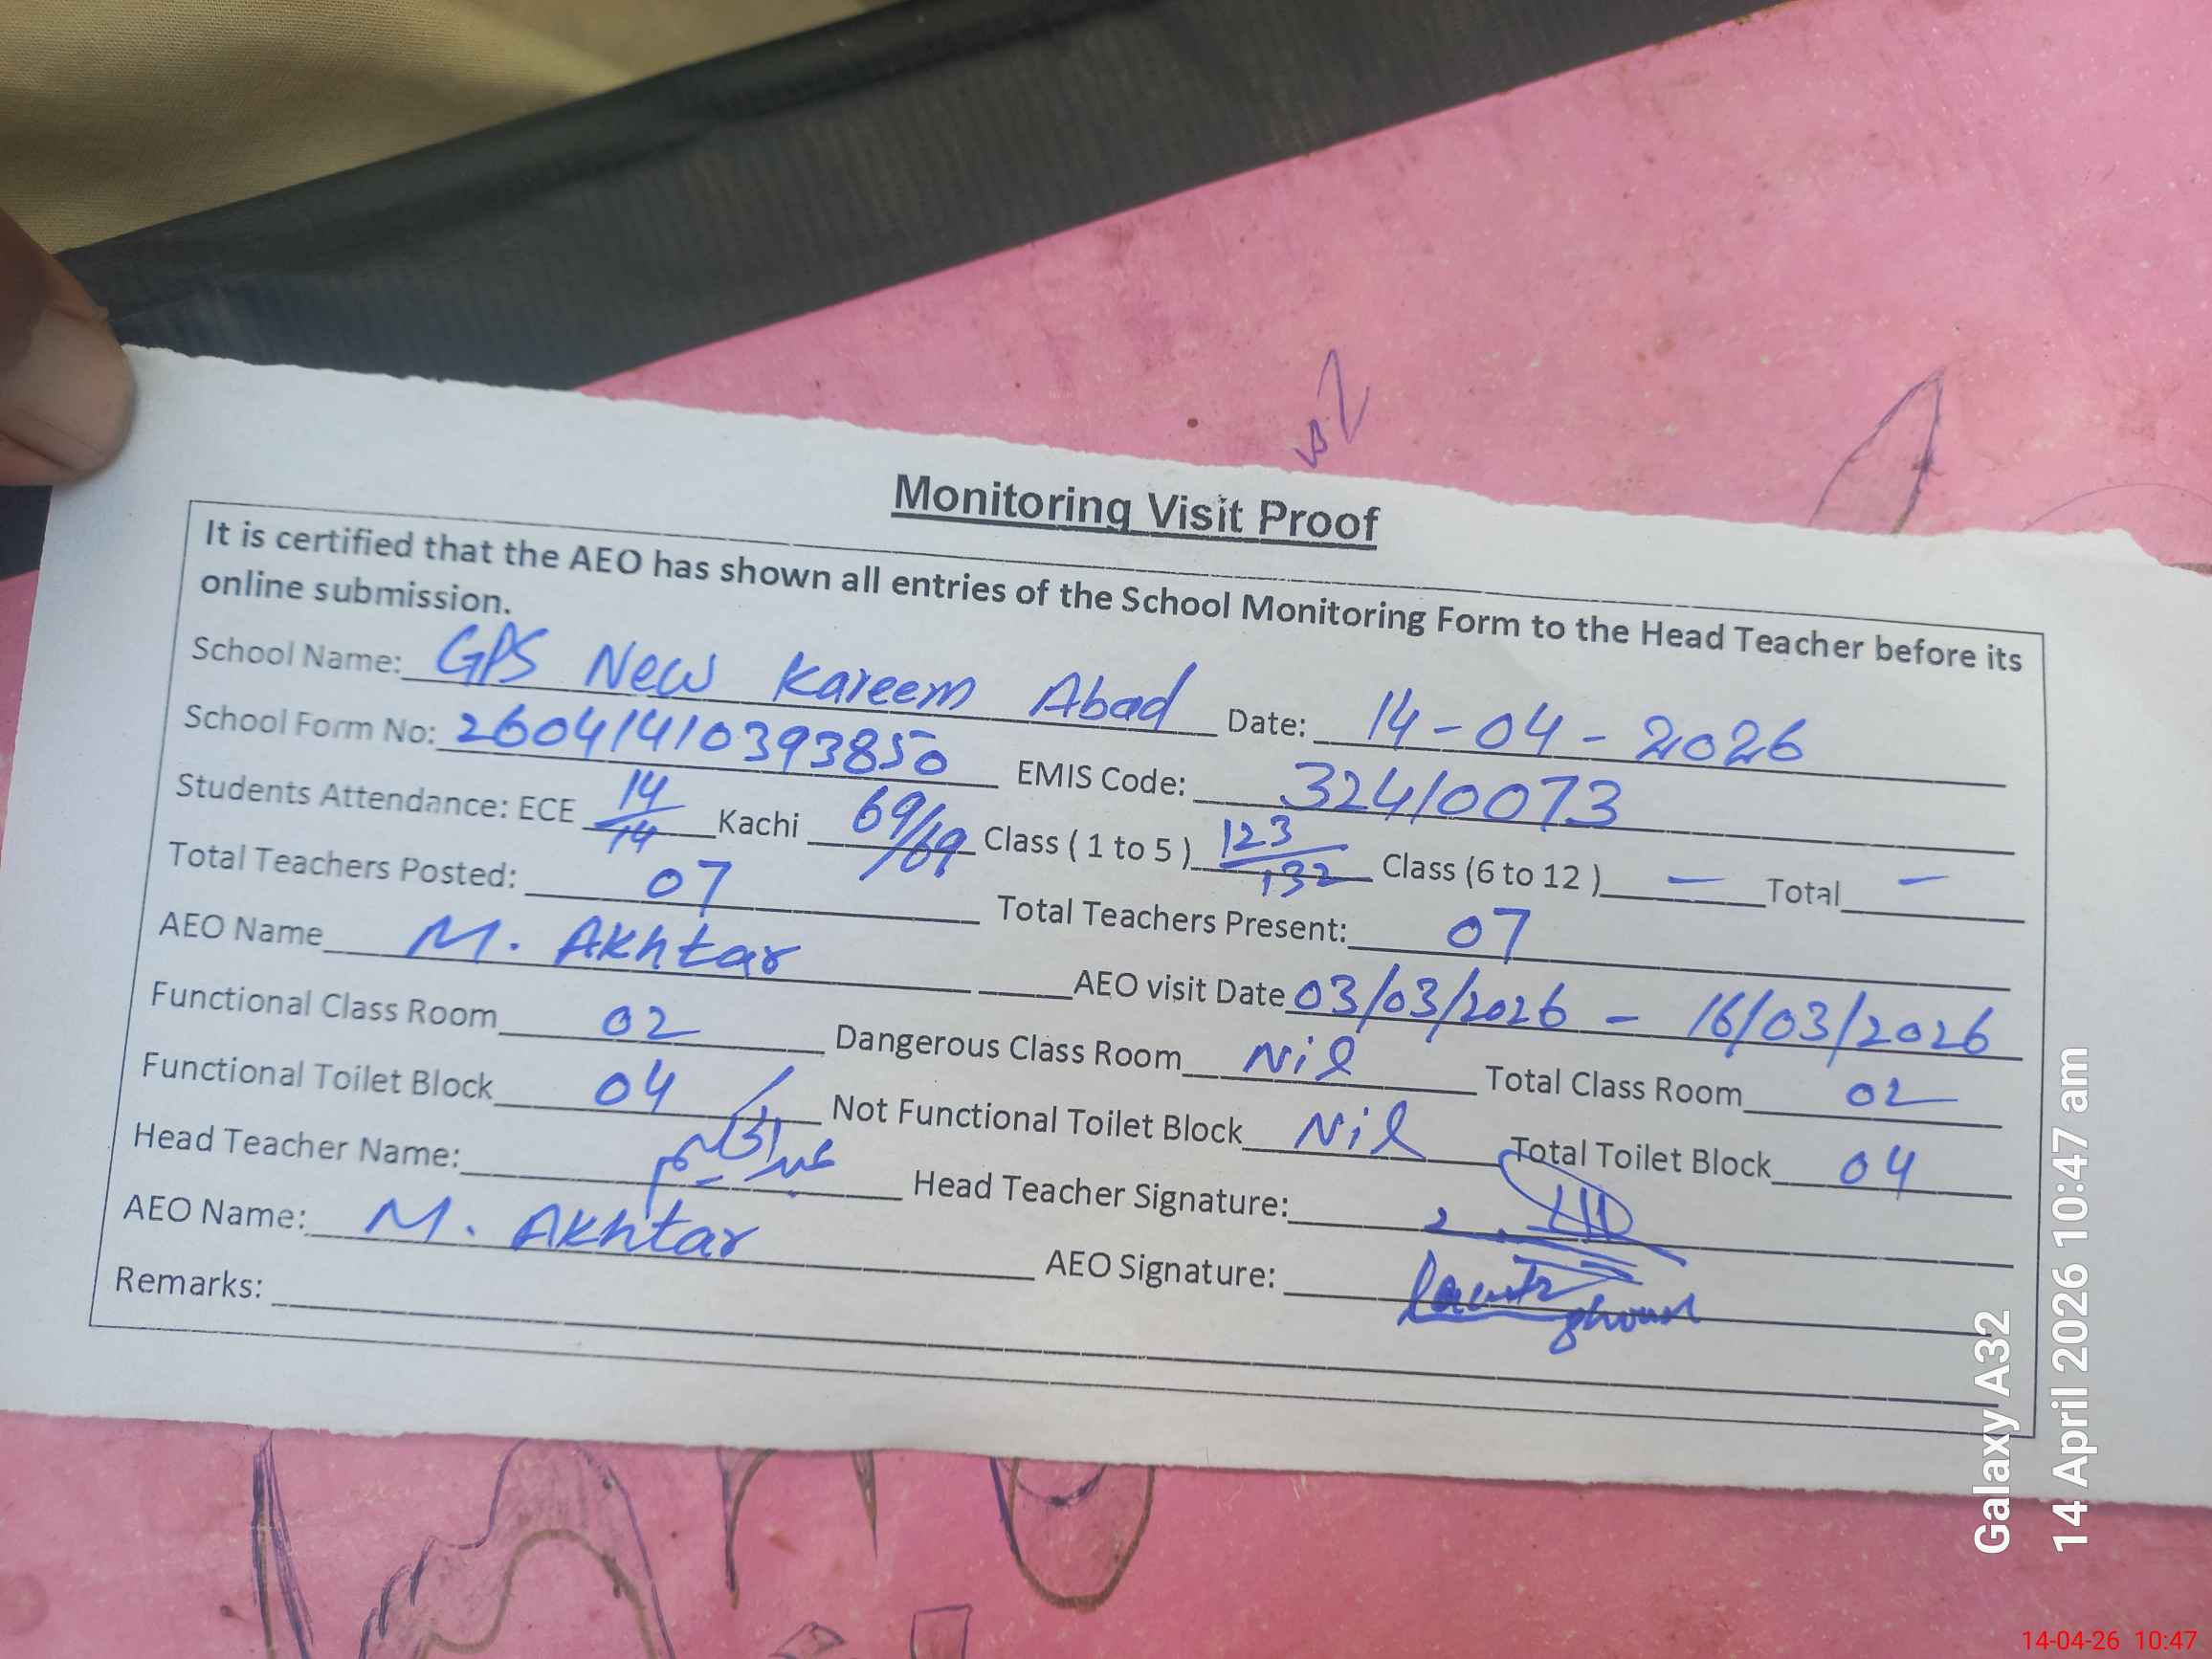 Monitoring Visit Proof
It is certified that the AEO has shown all entries of the School Monitoring Form to the Head Teacher before its
online submission.
School Name: GPS New Kareem Abad Date: 14-04-2026
School Form No: 26041410393850 EMIS Code: 32410073
Students Attendance: ECE 14/14 Kachi 69/69 Class ( 1 to 5 ) 123/132 Class (6 to 12 ) — Total —
Total Teachers Posted: 07 Total Teachers Present: 07
AEO Name M. Akhtar AEO visit Date 03/03/2026 - 16/03/2026
Functional Class Room 02 Dangerous Class Room Nil Total Class Room 02
Functional Toilet Block 04 Not Functional Toilet Block Nil Total Toilet Block 04
Head Teacher Name: Head Teacher Signature:
AEO Name: M. Akhtar AEO Signature:
Remarks:
Galaxy A32
14 April 2026 10:47 am
14-04-26 10:47